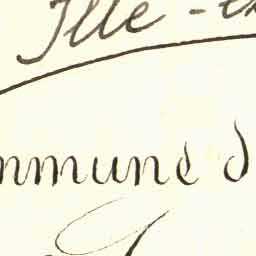 Ille-e
mmune d